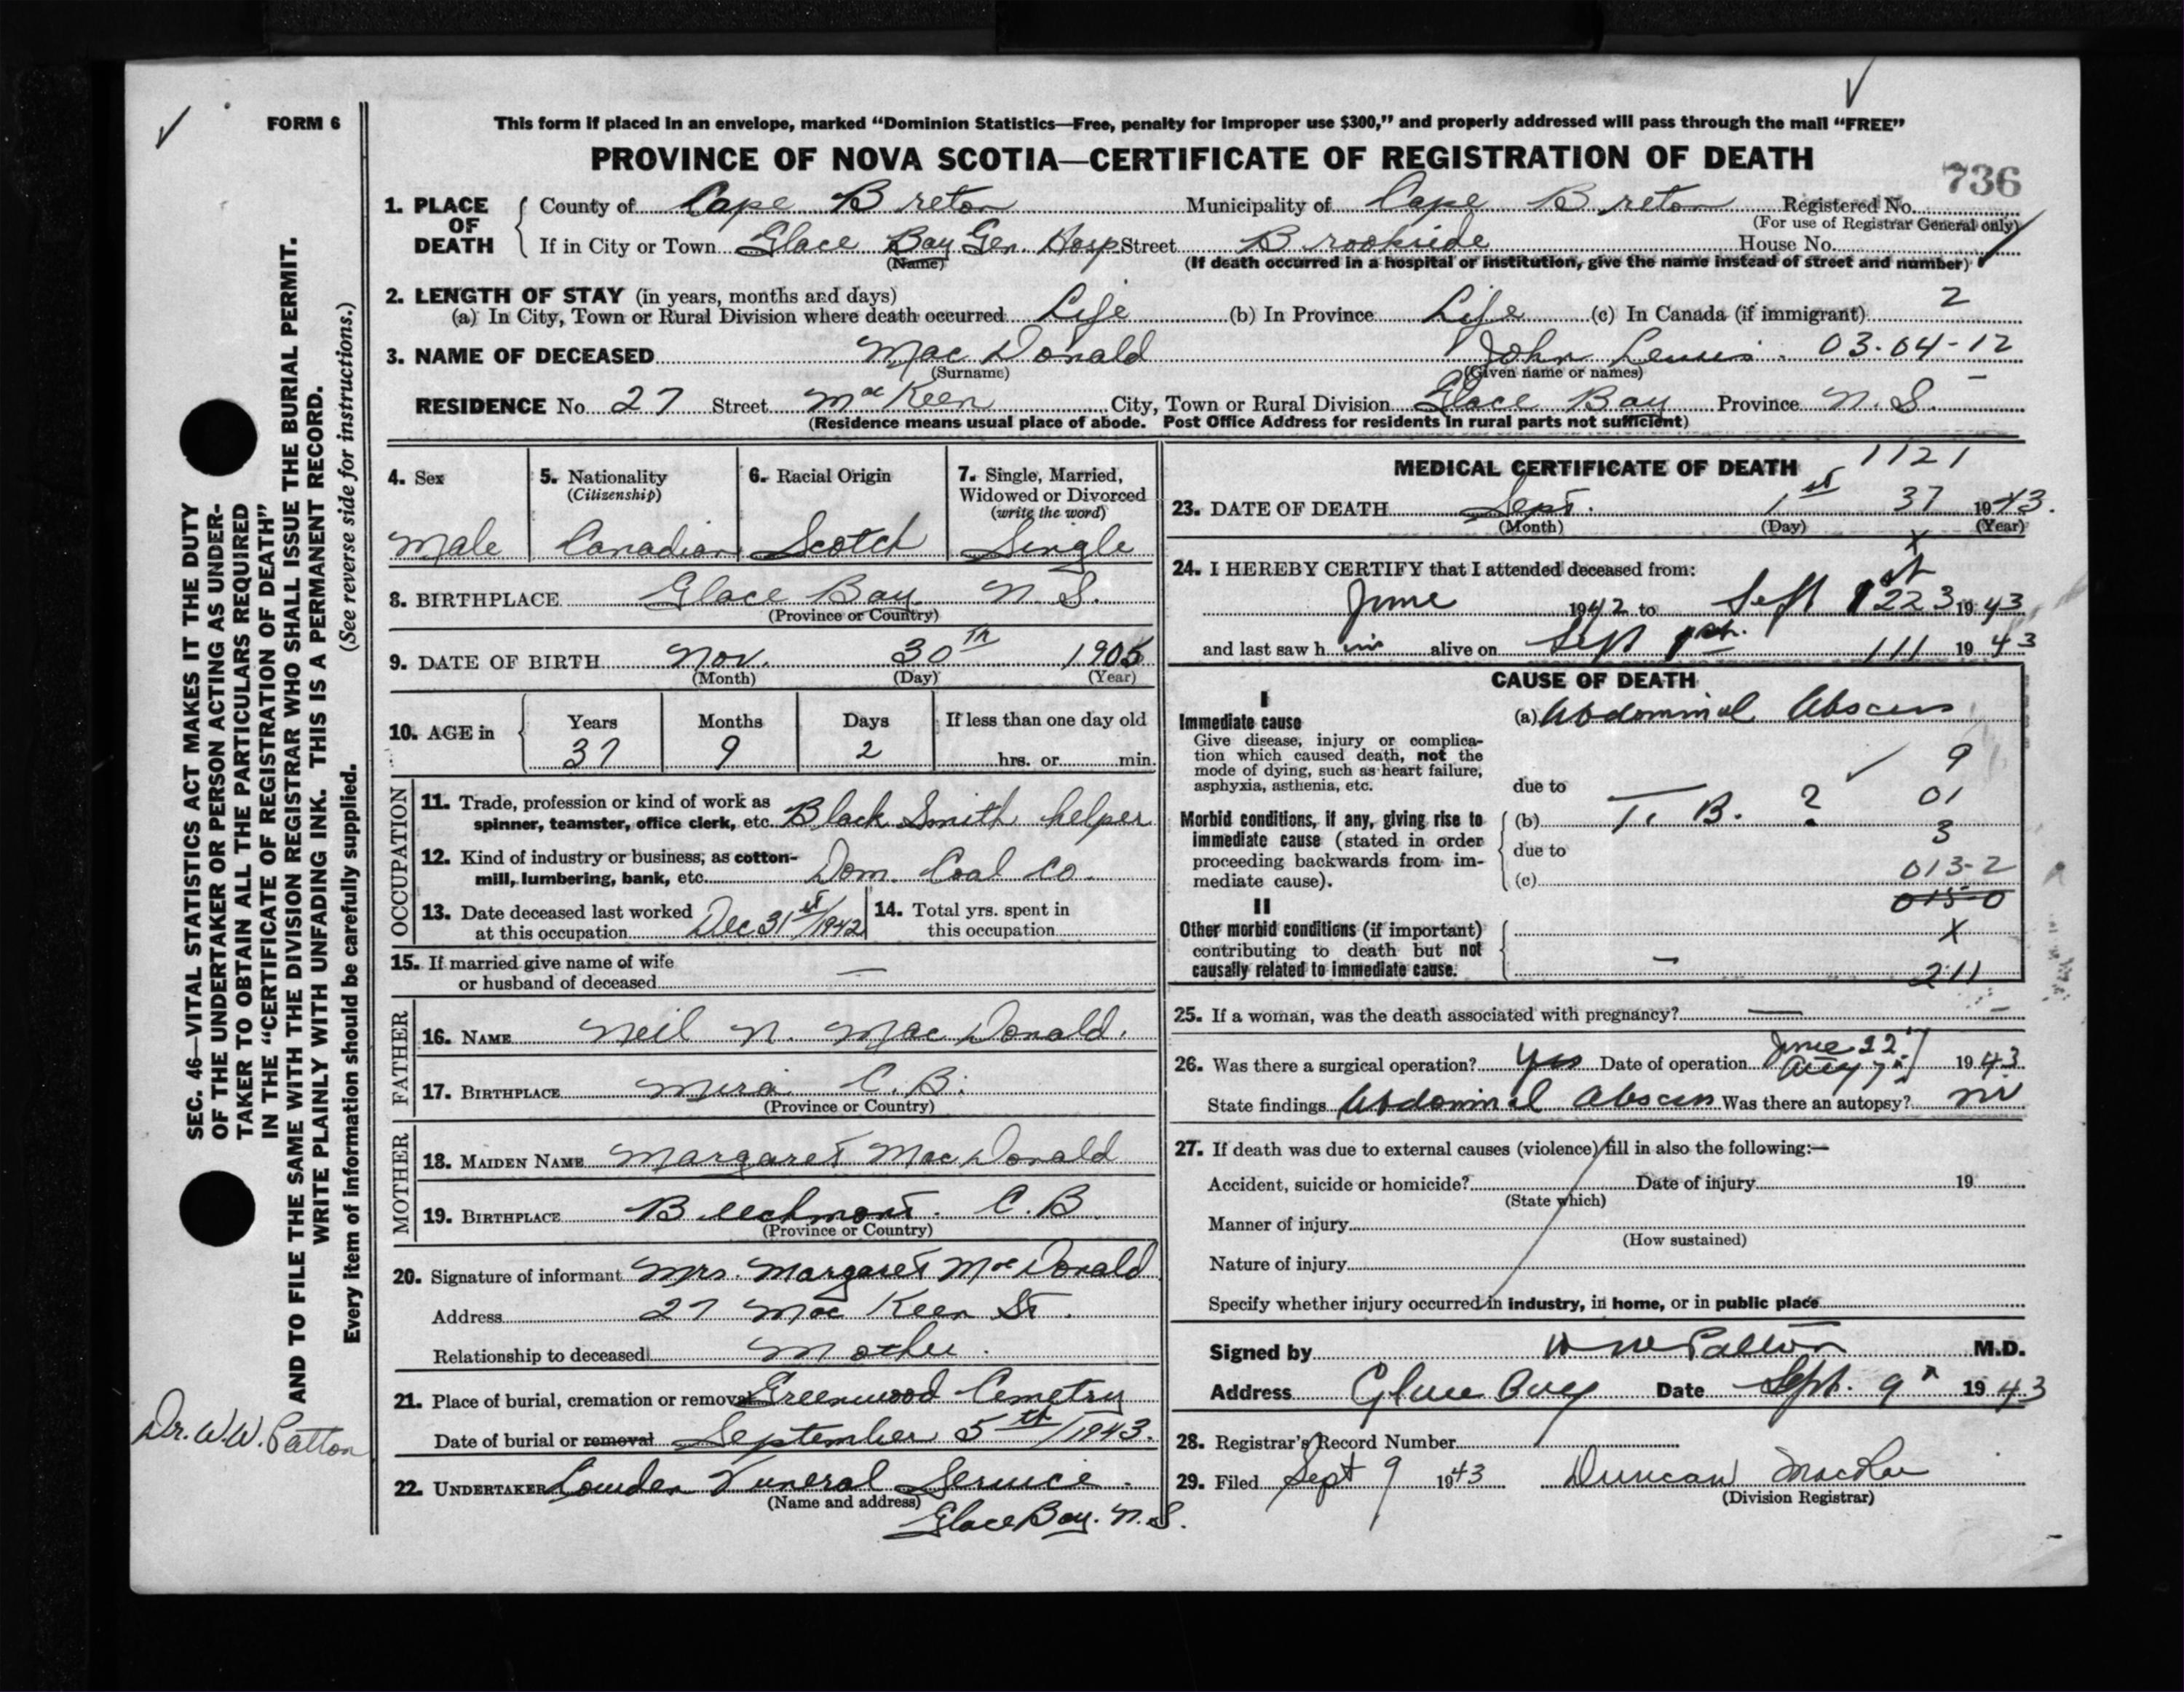 FORM 6
This form if placed in an envelope, marked "Dominion Statistics—Free, penalty for improper use $300," and properly addressed will pass through the mail "FREE"
PROVINCE OF NOVA SCOTIA—CERTIFICATE OF REGISTRATION OF DEATH
736
1. PLACE OF DEATH County of Cape Breton Municipality of Cape Breton Registered No.
(For use of Registrar General only)
If in City or Town Glace Bay Gen. Hosp Street Brookside House No.
(Name) (If death occurred in a hospital or institution, give the name instead of street and number)
2. LENGTH OF STAY (in years, months and days)
(a) In City, Town or Rural Division where death occurred Life (b) In Province Life (c) In Canada (if immigrant) 2
3. NAME OF DECEASED Mac Donald John Lewis. 03-04-12
(Surname) (Given name or names)
RESIDENCE No. 27 Street MacKeen City, Town or Rural Division Glace Bay Province N. S.
(Residence means usual place of abode. Post Office Address for residents in rural parts not sufficient)
4. Sex 5. Nationality 6. Racial Origin 7. Single, Married,
(Citizenship) Widowed or Divorced
(write the word)
Male Canadian Scotch Single
8. BIRTHPLACE Glace Bay N. S.
(Province or Country)
9. DATE OF BIRTH Nov. 30th 1905
(Month) (Day) (Year)
10. AGE in Years Months Days If less than one day old
37 9 2 hrs. or min.
OCCUPATION
11. Trade, profession or kind of work as
spinner, teamster, office clerk, etc. Black Smith helper
12. Kind of industry or business, as cotton-
mill, lumbering, bank, etc. Dom. Coal Co.
13. Date deceased last worked 14. Total yrs. spent in
at this occupation Dec 31st/1942 this occupation
15. If married give name of wife
or husband of deceased —
FATHER
16. NAME Neil N. MacDonald.
17. BIRTHPLACE Mira C. B.
(Province or Country)
MOTHER
18. MAIDEN NAME Margaret MacDonald
19. BIRTHPLACE Beechmont. C. B.
(Province or Country)
20. Signature of informant Mrs. Margaret MacDonald
Address 27 MacKeen St.
Relationship to deceased Mother.
21. Place of burial, cremation or removal Greenwood Cemetry
Date of burial or removal September 5th/1943.
22. UNDERTAKER Funeral Service.
(Name and address)
Glace Bay. N. S.
MEDICAL CERTIFICATE OF DEATH 1121
23. DATE OF DEATH Sept. 1st 37 1943.
(Month) (Day) (Year)
X
24. I HEREBY CERTIFY that I attended deceased from:
June 1942 to Sept 1st 223 1943
and last saw h im alive on Sept 1st. 111 1943
CAUSE OF DEATH
I
Immediate cause (a) Abdominal Abscess
Give disease, injury or complica-
tion which caused death, not the
mode of dying, such as heart failure,
asphyxia, asthenia, etc. due to 9
01
Morbid conditions, if any, giving rise to (b) T. B. ?
immediate cause (stated in order 3
proceeding backwards from im- due to
mediate cause). (c) 013-2
015-0
II
Other morbid conditions (if important) X
contributing to death but not
causally related to immediate cause. – 211
25. If a woman, was the death associated with pregnancy? —
26. Was there a surgical operation? Yes Date of operation June 22 Aug 7 1943
State findings Abdominal Abscess Was there an autopsy? no
27. If death was due to external causes (violence) fill in also the following:—
Accident, suicide or homicide? Date of injury 19
(State which)
Manner of injury
(How sustained)
Nature of injury
Specify whether injury occurred in industry, in home, or in public place
Signed by W W Patton M.D.
Address Glace Bay Date Sept. 9 1943
28. Registrar's Record Number
29. Filed Sept 9 1943 Duncan MacRae
(Division Registrar)
SEC. 46—VITAL STATISTICS ACT MAKES IT THE DUTY
OF THE UNDERTAKER OR PERSON ACTING AS UNDER-
TAKER TO OBTAIN ALL THE PARTICULARS REQUIRED
IN THE "CERTIFICATE OF REGISTRATION OF DEATH"
AND TO FILE THE SAME WITH THE DIVISION REGISTRAR WHO SHALL ISSUE THE BURIAL PERMIT.
WRITE PLAINLY WITH UNFADING INK. THIS IS A PERMANENT RECORD.
Every item of information should be carefully supplied. (See reverse side for instructions.)
Dr. W.W. Patton